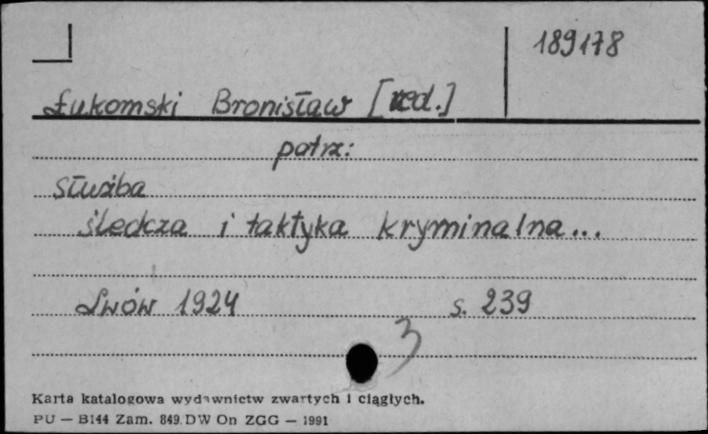 189178
Łukomski Bronisław [red.]
patrz:
Służba
śledcza i taktyka kryminalna...
Lwów 1924 s. 239
3
Karta katalogowa wydawnictw zwartych i ciągłych.
PU — B144 Zam. 849 DW On ZGG — 1991